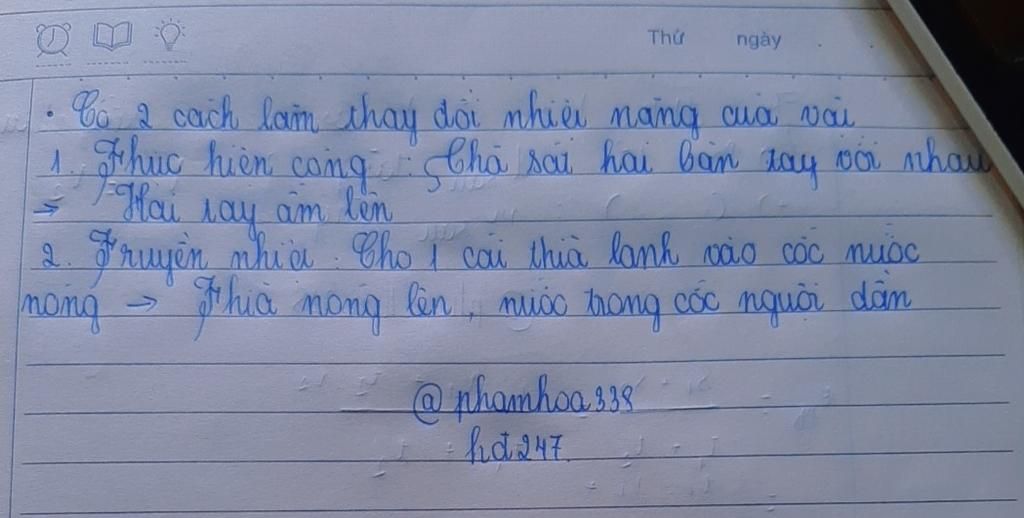 Thứ ngày
• Có 2 cách làm thay đổi nhiệt năng của vật
1. Thực hiện công : Chà sát hai bàn tay với nhau
→ Hai tay ấm lên
2. Truyền nhiệt. Cho 1 cái thìa lạnh vào cốc nước
nóng → Thìa nóng lên, nước trong cốc nguội dần
@phamhoa338
hđ247